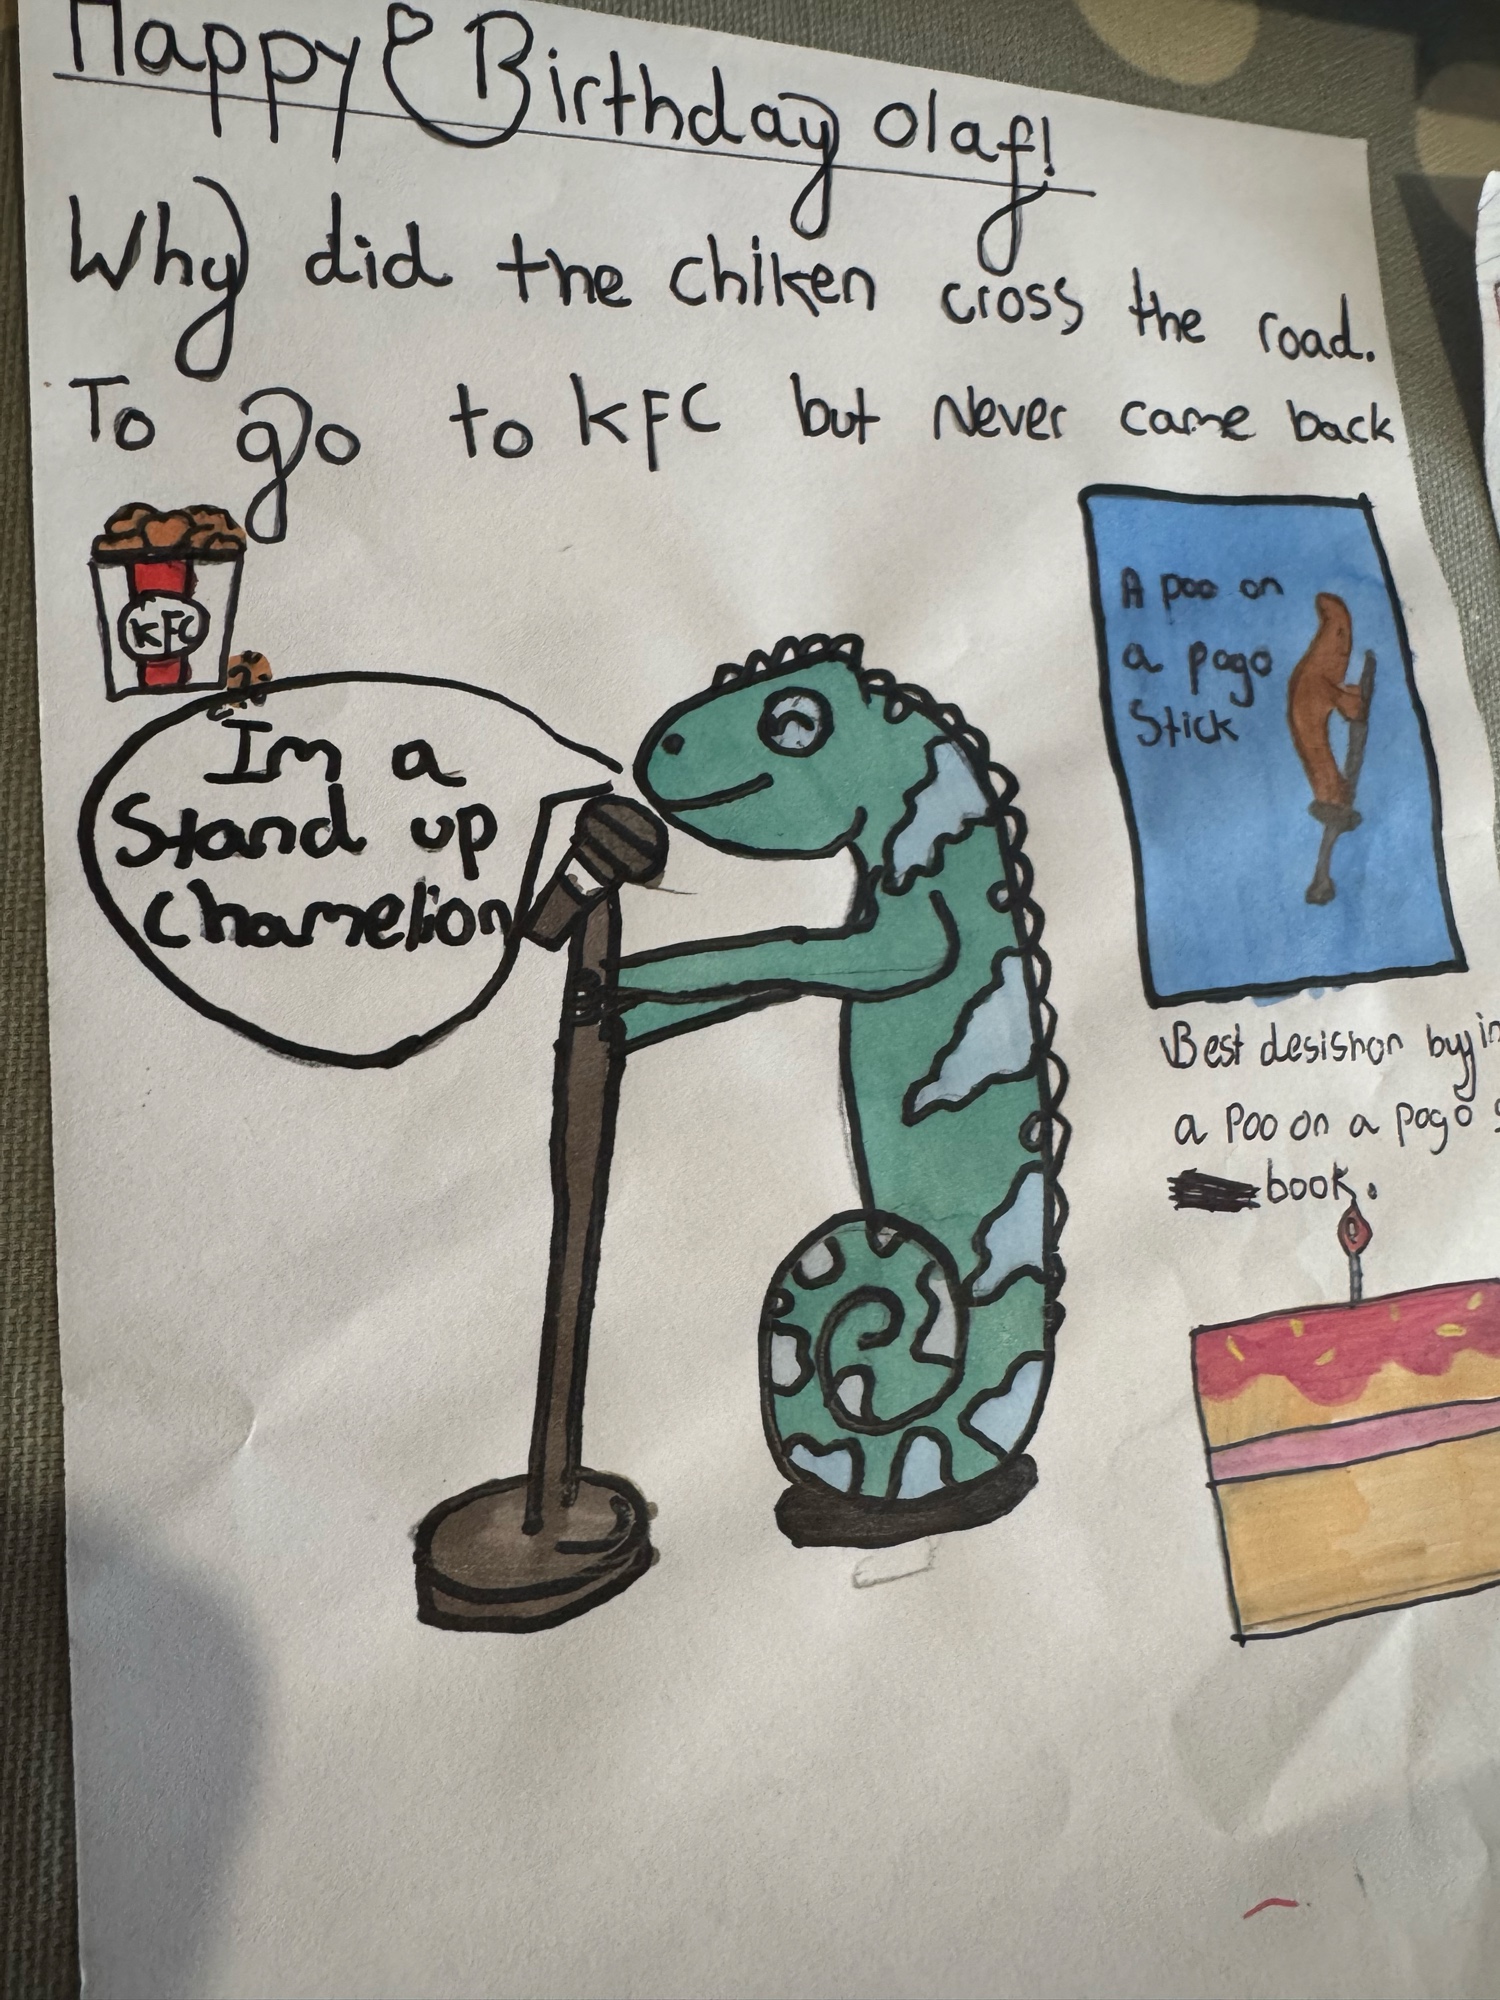 Happy Birthday Olaf!
Why did the chiken cross the road.
To go to KFC but Never came back
KFC
Im a
Stand up
Chamelion
A poo on
a pogo
Stick
Best desishon buyin
a Poo on a pogo s
book.